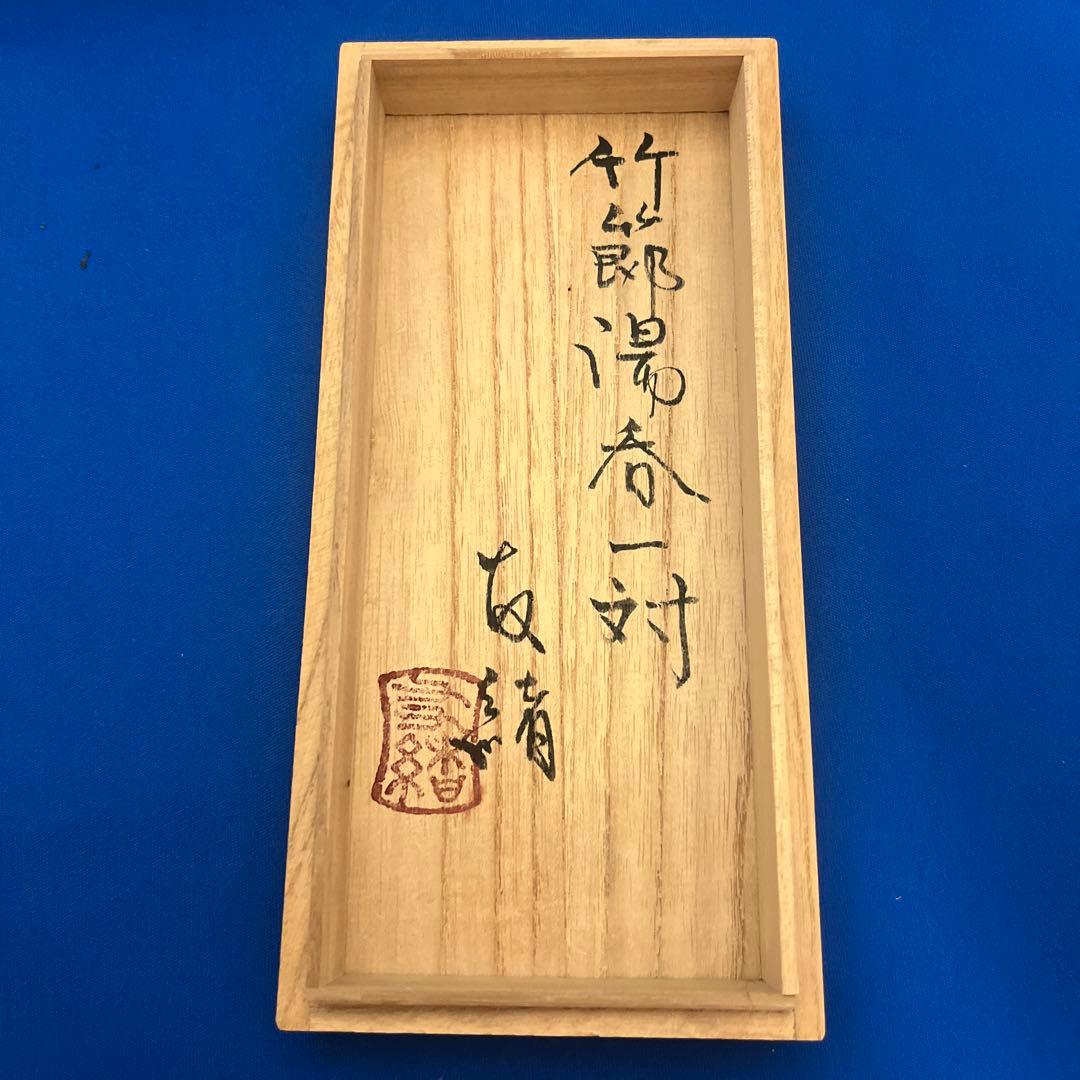 竹節湯呑一対
友緒